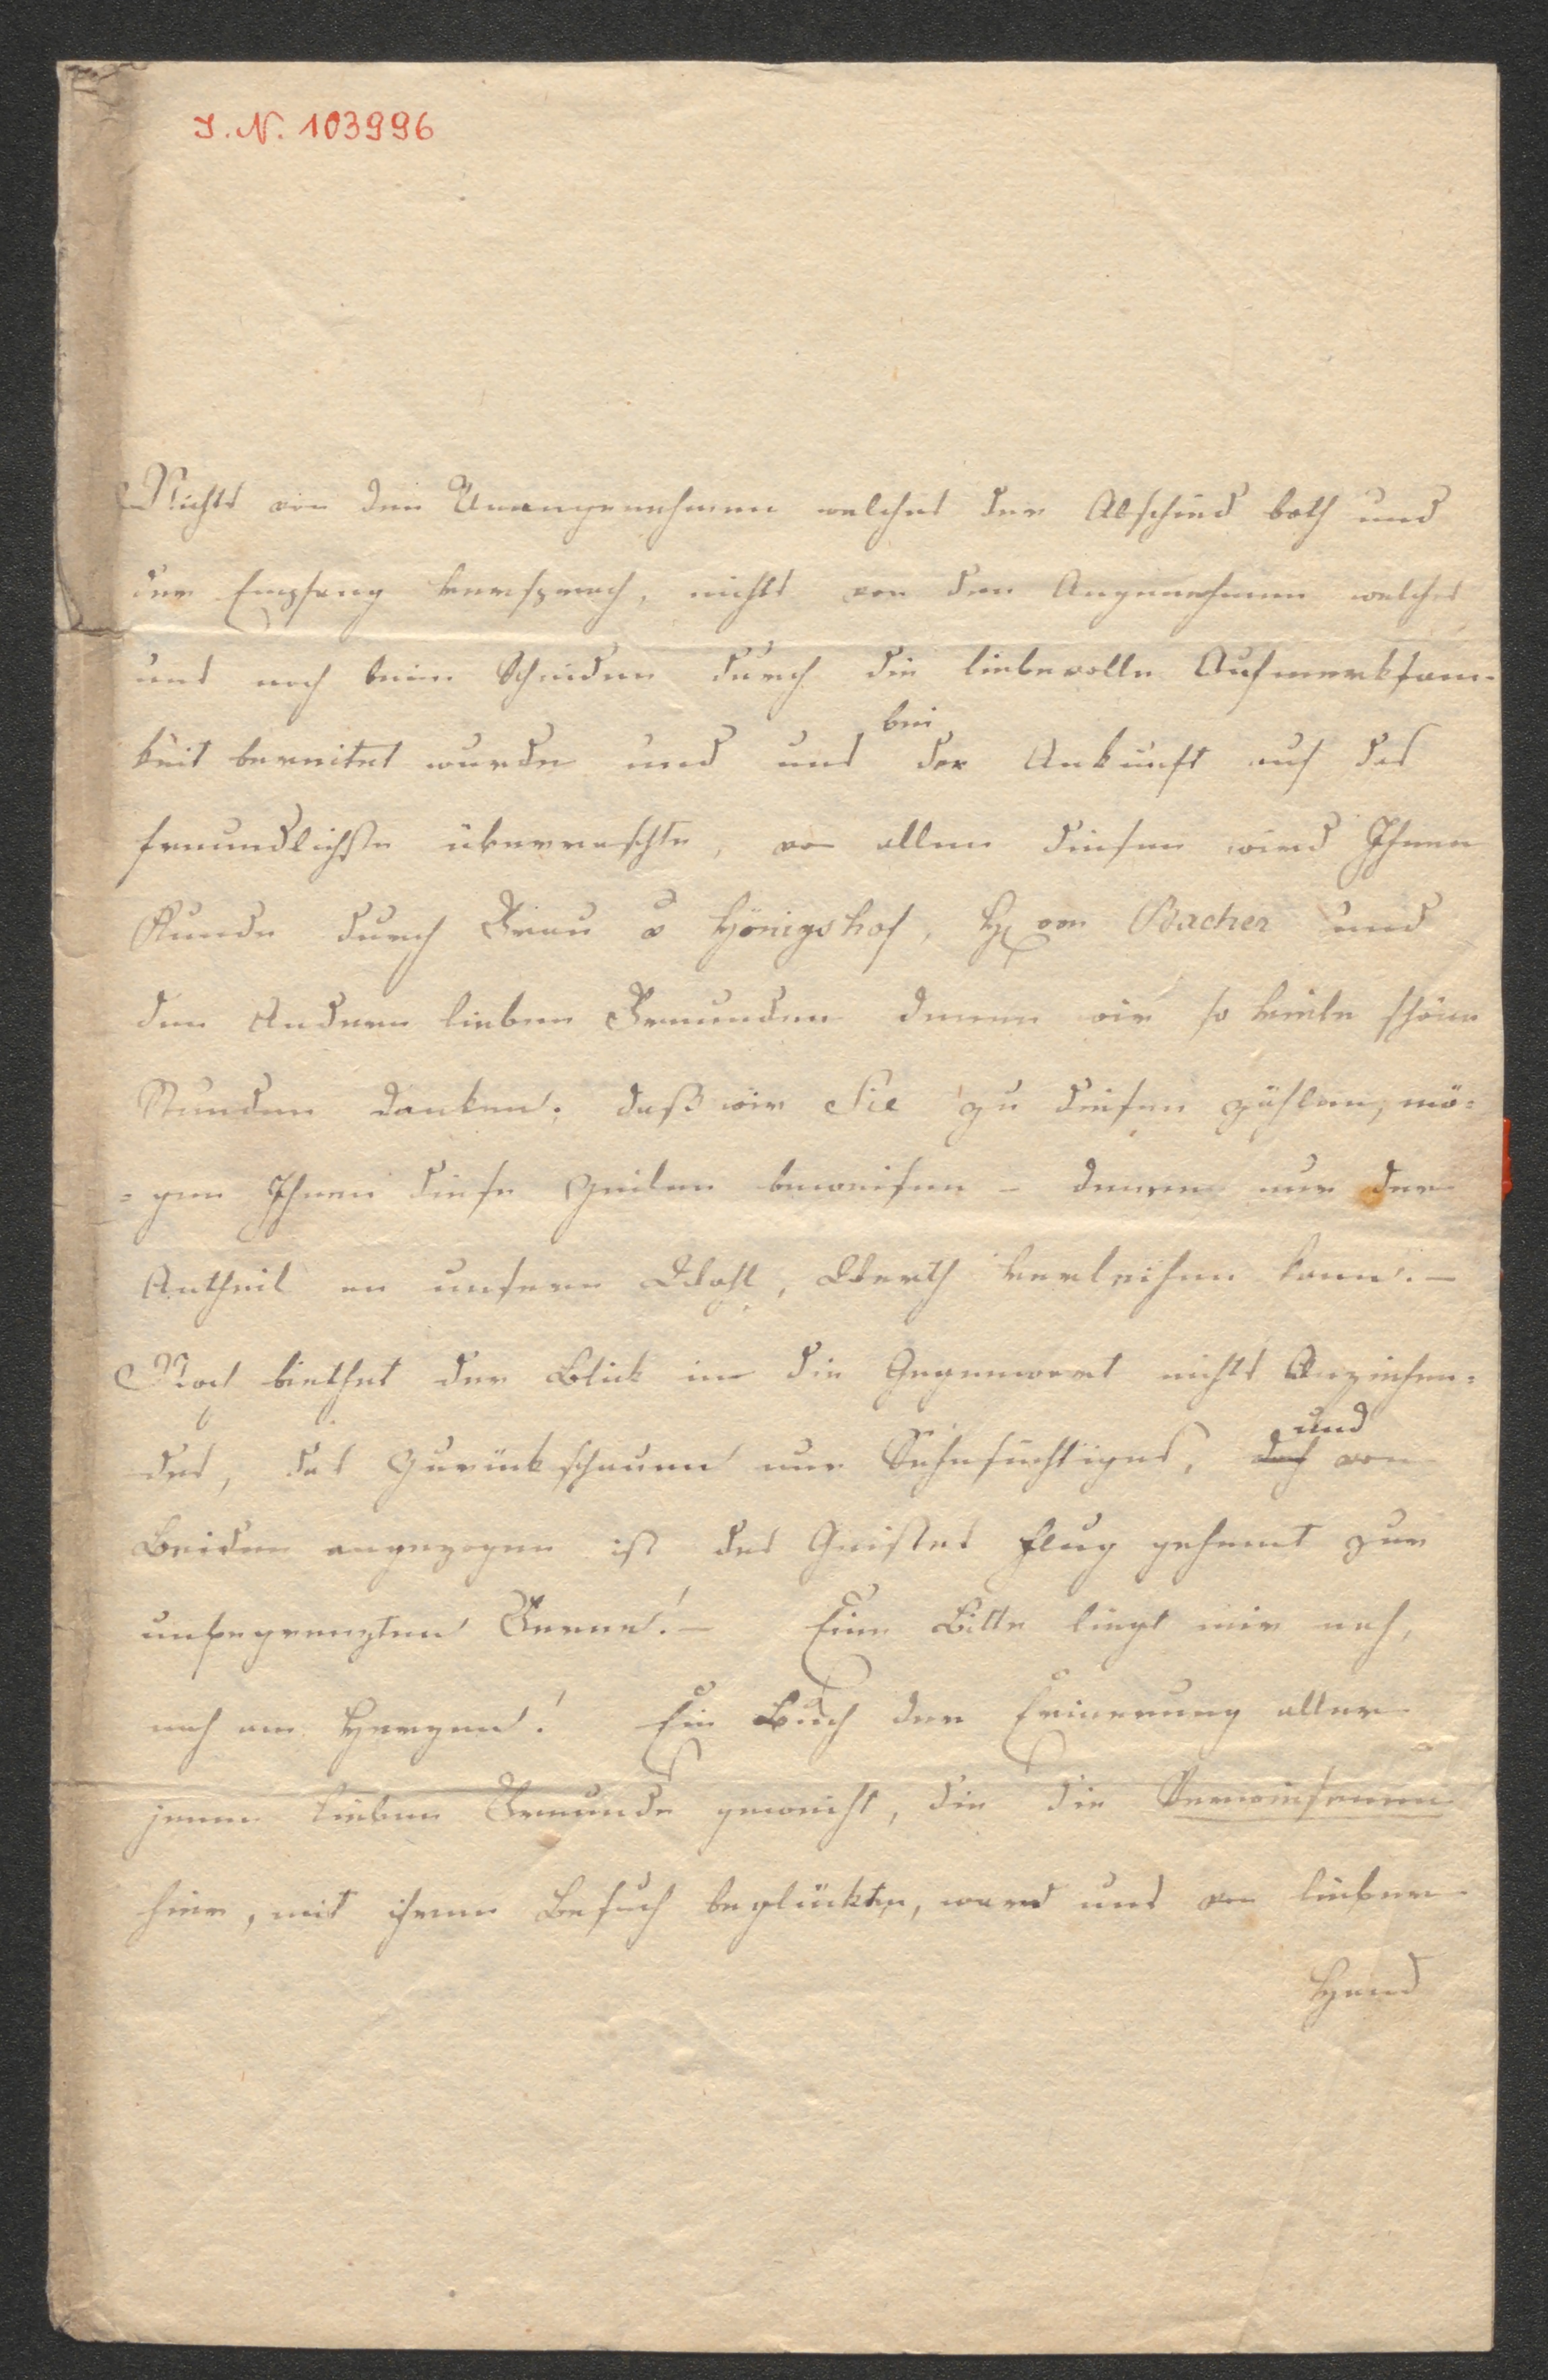 I. N. 103996
Nichts von den Unangenehmen welches der Abschied both und
der Empfang versprach, nichts von den Angenehmen welches
uns noch beim Scheiden durch die liebevolle Aufmerksam-
keit bereitet wurde und uns bei der Ankunft auf das
freundlichste überraschte, von allem diesen wird Ihnen
Kunde durch Frau v Hönigshof, H von Bacher und
den Andern lieben Freunden denen wir so viele schöne
Stunden danken; daß wir Sie zu diesen zählen, mö=
=gen Ihnen diese Zeilen beweisen – denen nur der
Antheil an unsern Wohl, Werth verleihen kann. –
Noch biethet der Blick in die Gegenwart nichts Anziehen=
des, das Zurückschauen nur Sehnsüchtiges, doch und von
Beiden angezogen ist des Geistes Flug gehemt zur
unbegrenzten Ferne! – Eine Bitte liegt mir nah,
nah am Herzen! Ein Buch der Erinerung aller
jenen lieben Freunde geweiht, die die Verwaisenen
hier, mit ihrem Besuch beglückten, ward uns von lieber
Hand